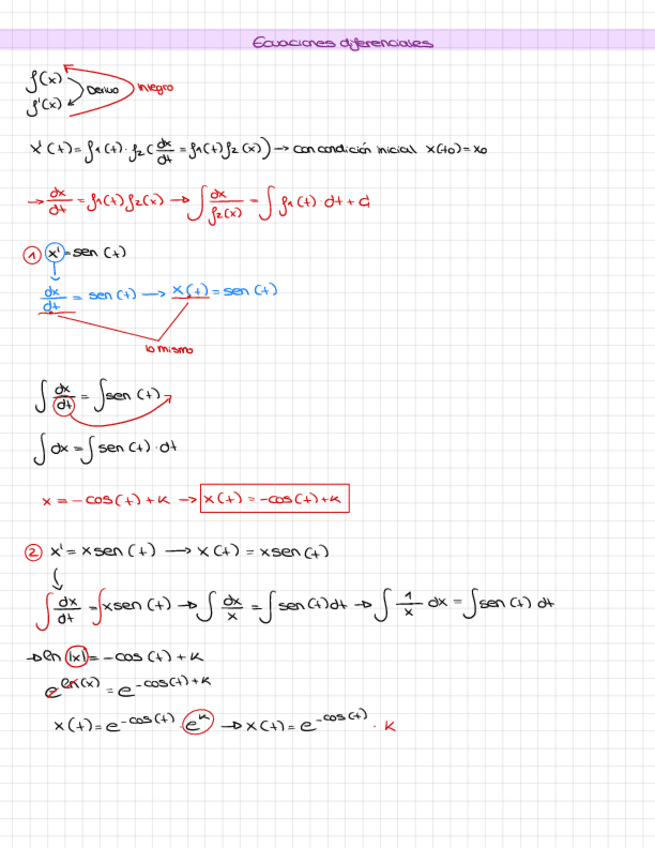 Ecuaciones diferenciales
f(x)
Derivo
Integro
f'(x)
x'(t) = f₁(t) · f₂ (dx/dt = f₁(t) f₂(x)) → con condición inicial x(t₀) = x₀
→ dx/dt = f₁(t) f₂(x) → ∫ dx/f₂(x) = ∫ f₁(t) · dt + C
① x' = sen (t)
dx/dt = sen (t) → x(t) = sen (t)
lo mismo
∫ dx/dt = ∫ sen (t)
∫ dx = ∫ sen (t) · dt
x = -cos(t) + K → x(t) = -cos(t) + K
② x' = x sen (t) → x(t) = x sen (t)
∫ dx/dt = ∫ x sen (t) → ∫ dx/x = ∫ sen (t) dt → ∫ 1/x dx = ∫ sen (t) dt
→ ln |x| = -cos (t) + K
e^ln(x) = e^-cos(t)+K
x(t) = e^-cos(t) · e^K → x(t) = e^-cos(t) · K